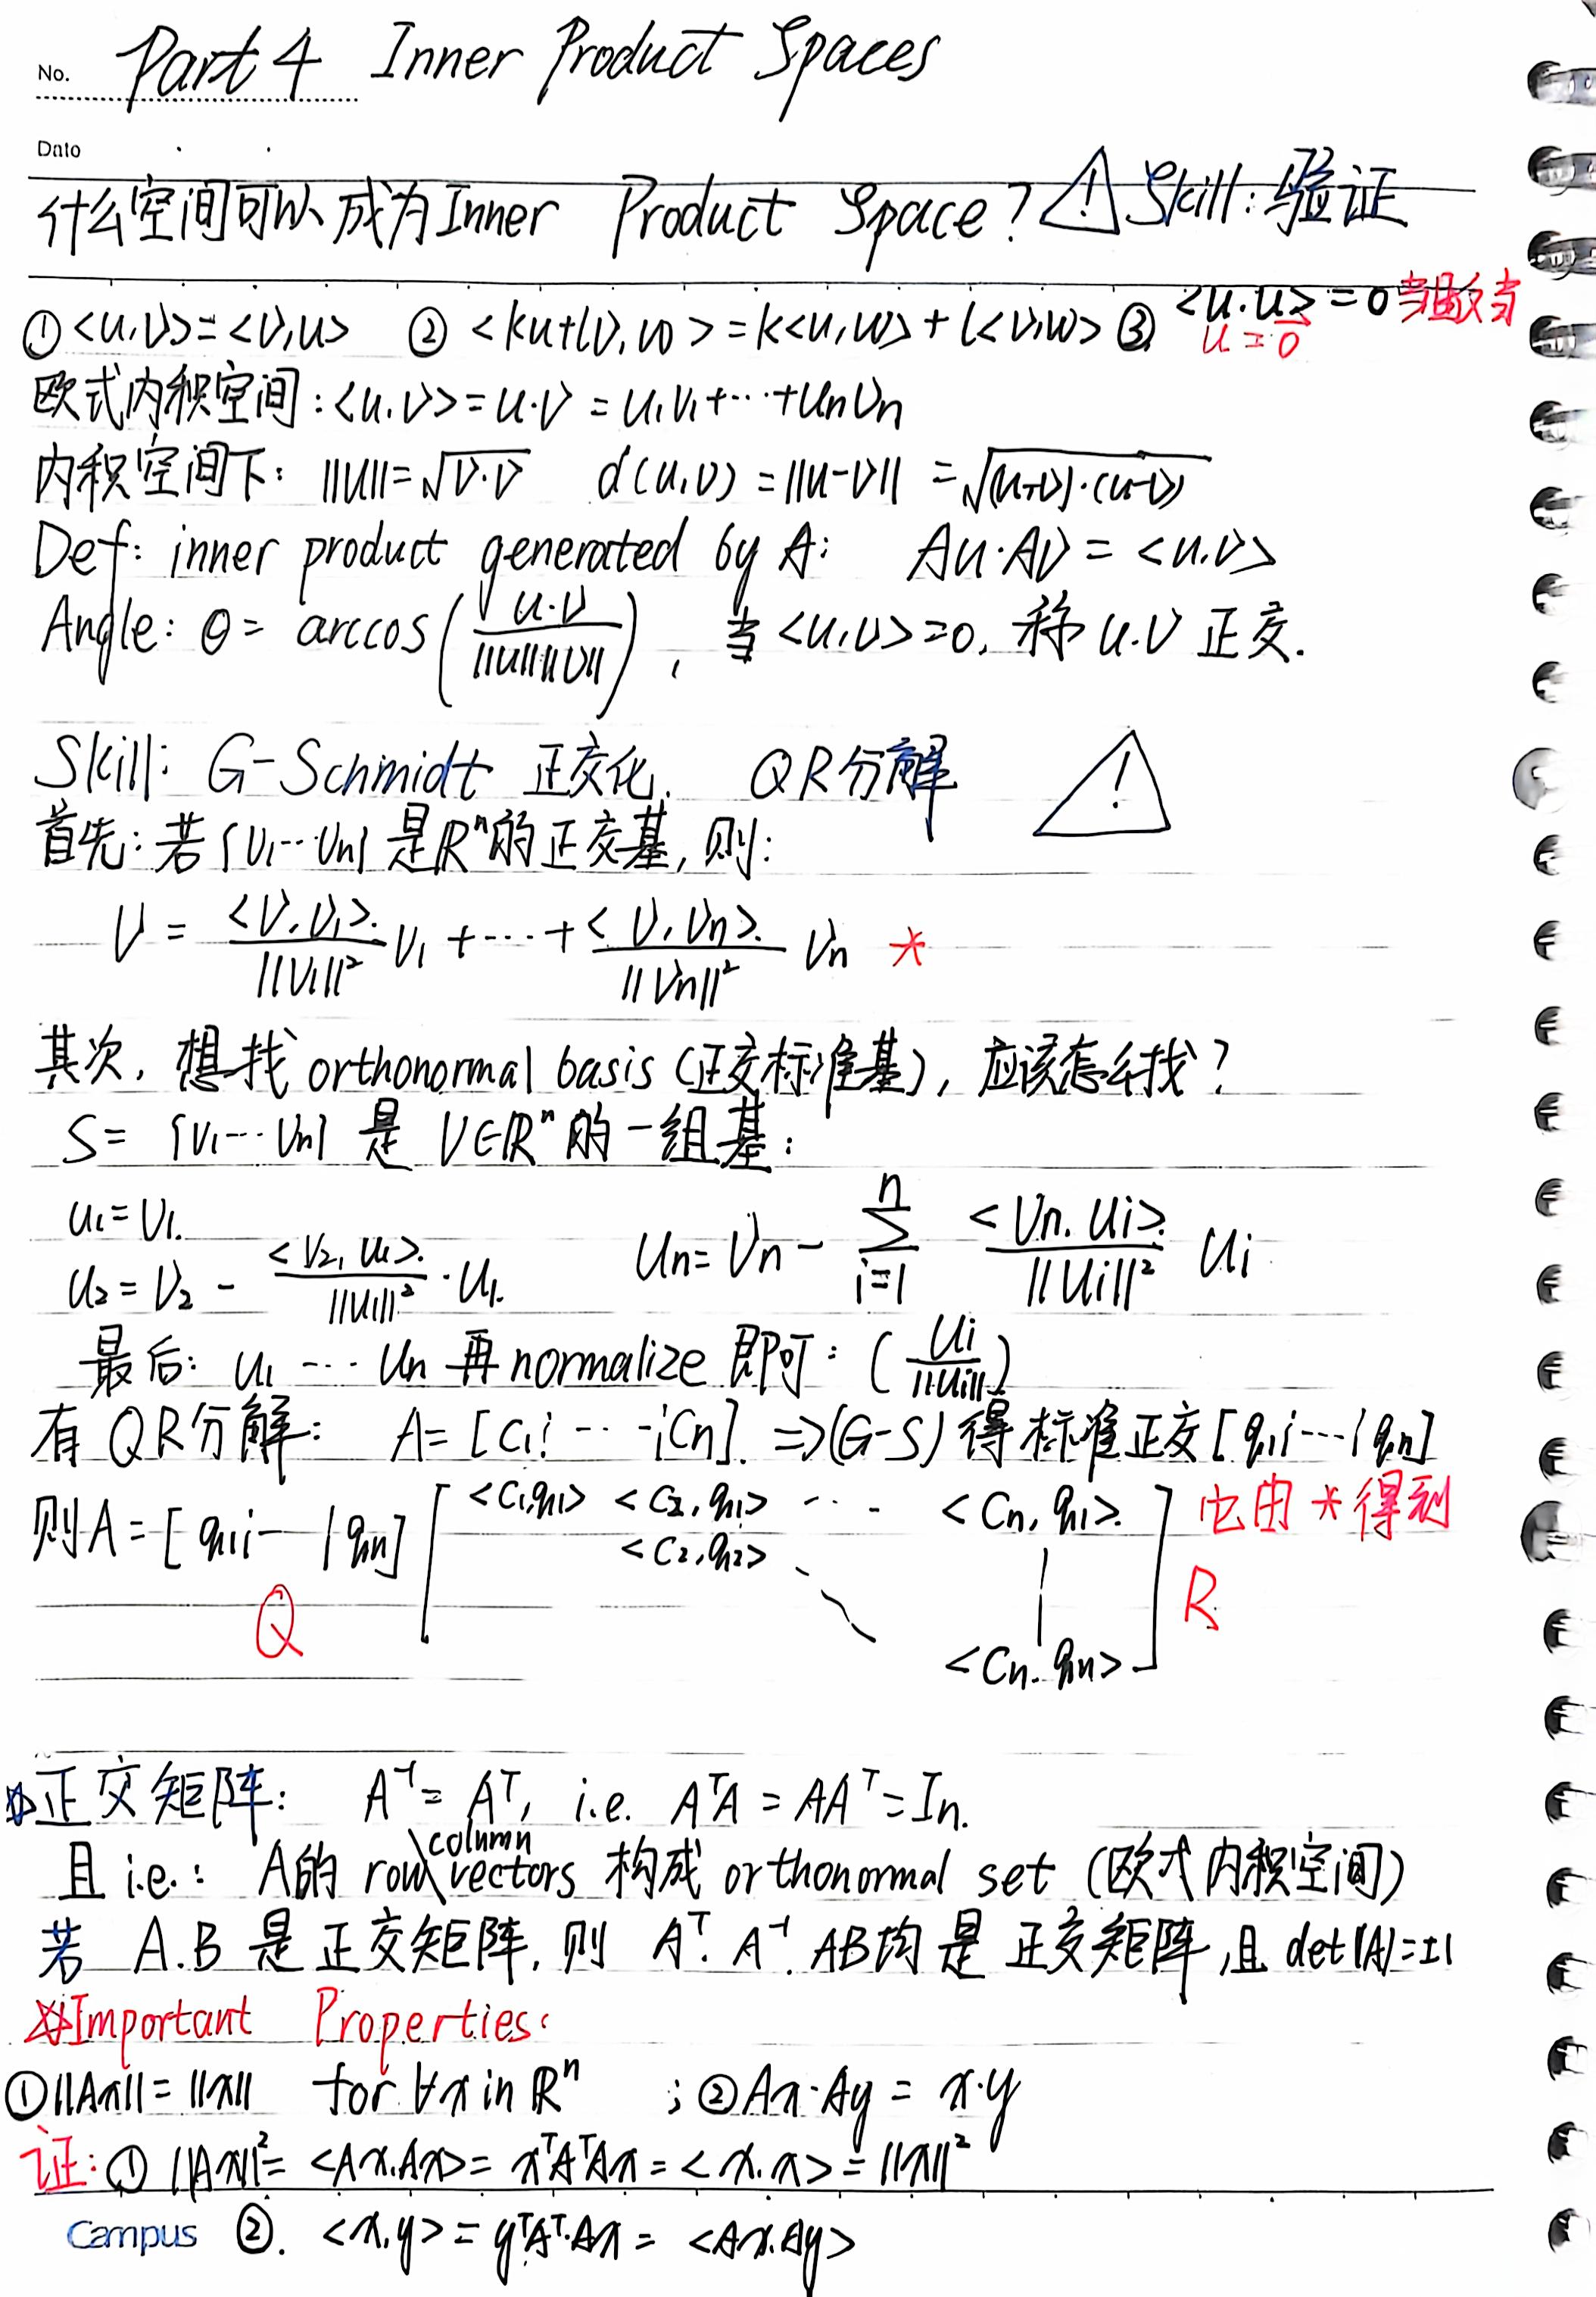 No. Part 4 Inner Product Spaces
Date
什么空间可以成为Inner Product Space? ⚠ Skill: 验证
① <u,v>=<v,u> ② <ku+lv,w>=k<u,w>+l<v,w> ③ <u.u>=0 当且仅当 u=0
欧式内积空间: <u.v>=u·v=u₁v₁+···+unvn
内积空间下: ||u||=√(v·v) d(u,v)=||u-v||=√((u-v)·(u-v))
Def: inner product generated by A: Au·Av=<u.v>
Angle: θ= arccos(u·v/||u||||v||), 当<u,v>=0, 称 u.v 正交.
Skill: G-Schmidt 正交化. QR分解 ⚠
首先: 若{v₁···vn}是ℝⁿ的正交基, 则:
v = <v,v₁>/||v₁||² v₁ +····+ <v,vn>/||vn||² vn *
其次, 想找 orthonormal basis (正交标准基), 应该怎么找?
S= {v₁···vn} 是 V∈ℝⁿ 的一组基:
u₁=v₁.
u₂=v₂ - <v₂,u₁>/||u₁||² ·u₁. un=vn - ∑_{i=1}^{n} <vn.ui>/||ui||² ui
最后: u₁ ··· un 再 normalize 即可: (ui/||ui||)
有QR分解: A=[c₁¦····¦cn]. ⇒(G-S) 得标准正交[q₁¦···|qn]
则A=[q₁¦– |qn] [<c₁,q₁> <c₂,q₁> ···· <cn,q₁>. 它由 * 得到
<c₂,q₂>
Q R
<cn.qn>]
正交矩阵: A⁻¹=Aᵀ, i.e. AᵀA=AAᵀ=In.
且 i.e.: A的 row\column vectors 构成 orthonormal set (欧式内积空间)
若 A.B 是正交矩阵, 则 Aᵀ. A⁻¹. AB均是正交矩阵,且 det(A)=±1
Important Properties:
①||Ax||=||x|| for ∀x in ℝⁿ ; ②Ax·Ay = x·y
证: ① ||Ax||²= <Ax.Ax>= xᵀAᵀAx=<x.x>=||x||²
Campus ②. <x,y>=yᵀAᵀ·Ax= <Ax.Ay>